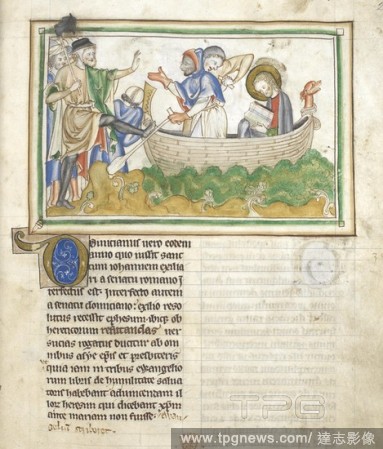 Domicianus vero eodem
anno quo iussit sanc
tum iohannem exilia
ri a senatu romano i
terfectus est. Interfecto autem
a senatu domiciano: exilio reso
lutus recessit ephesum. ibiqz ob
hereticorum refutandas ver
sucias rogatus ab om
nibus asye epis et presbiteris
quia iam in tribus evangelio
rum libris de humilitate salva
toris habebant
ior heresim qui dicebant xpm
ante mariam non fuisse.
TPG
www.tpgnews.com/達志影像